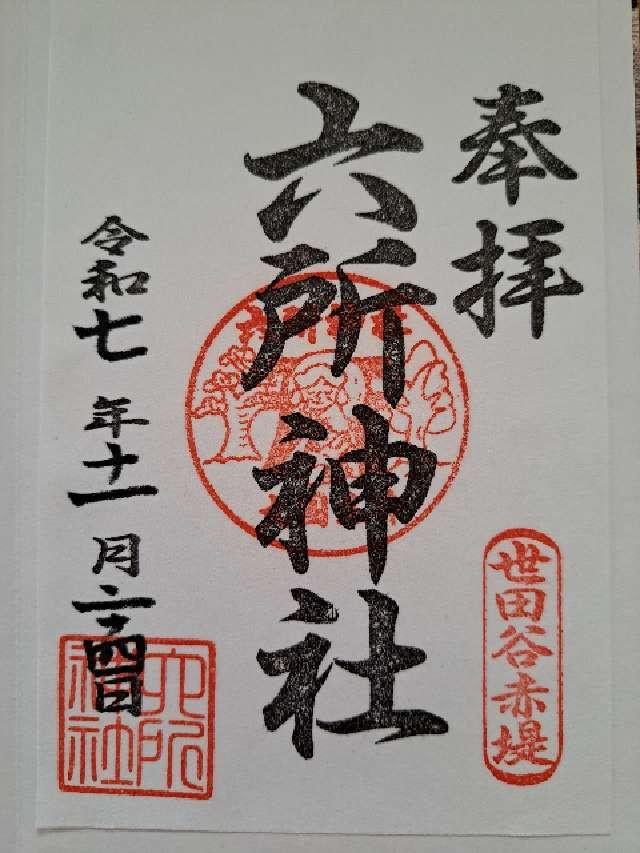 奉拝
世田谷赤堤
六所神社
令和七年十一月二十四日
六所神社